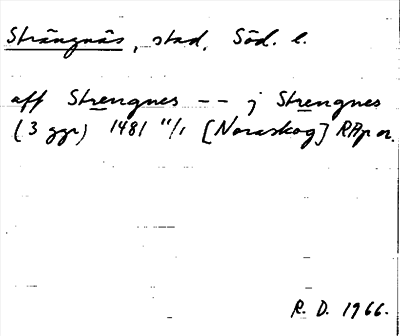 Strängnäs, stad, Söd. l.
aff Strengnes -- j Strengnes
(3 ggr) 1481 11/1 [Noraskog] RAp or.
R. D. 1966.